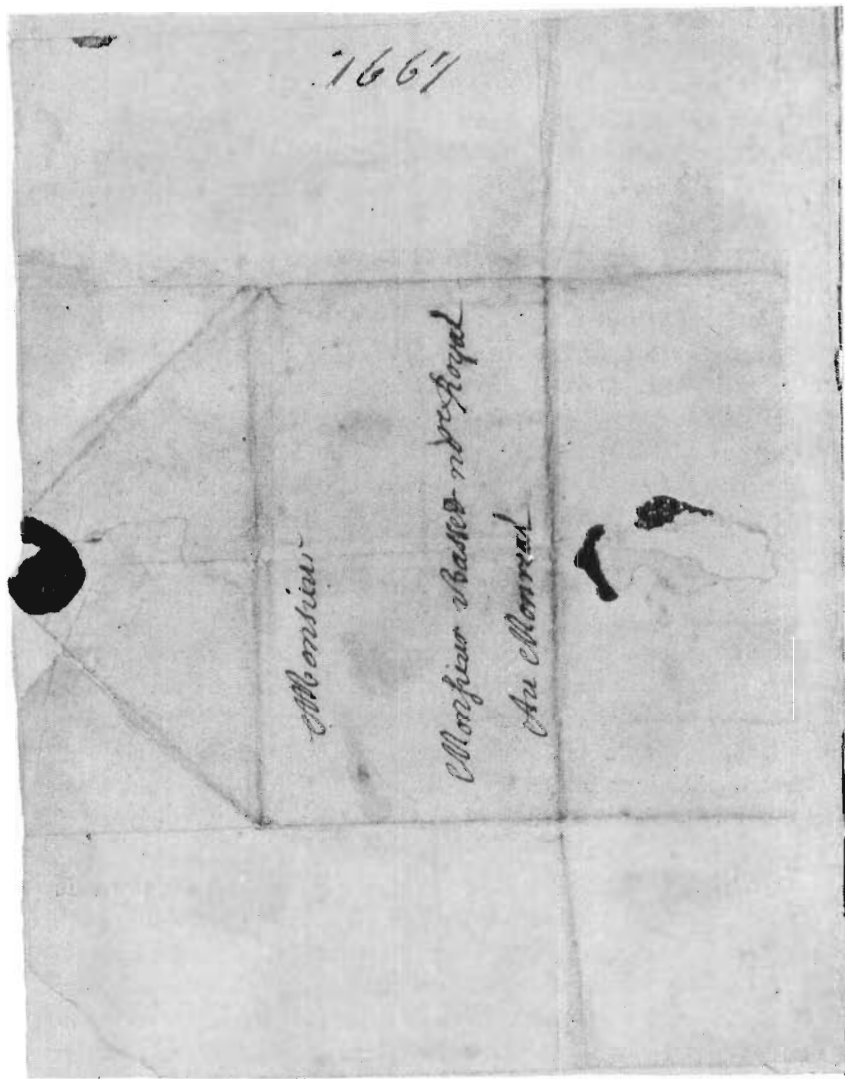 1667
Monsieur
Monsieur Basset nore Royal
Au Monreal